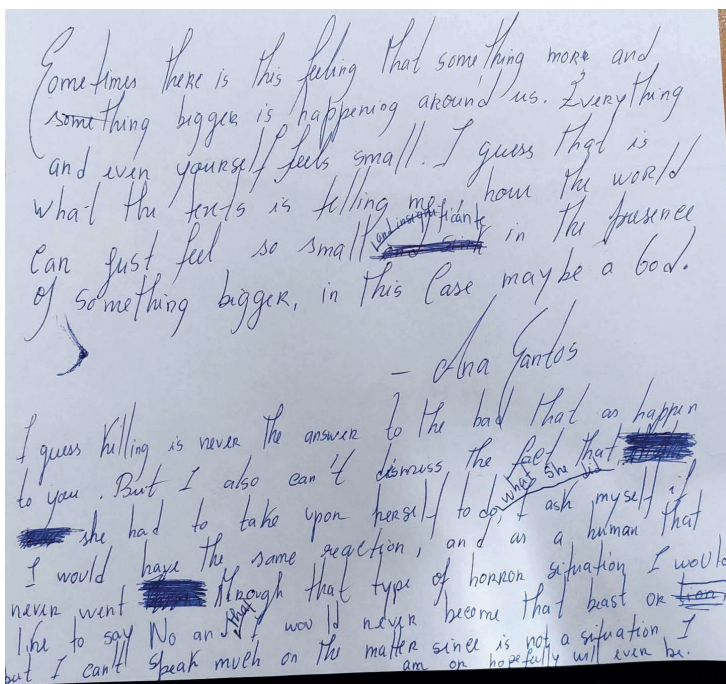 Sometimes there is this feeling that something more and
something bigger is happening around us. Everything
and even yourself feels small. I guess that is
what the texts is telling me, how the world
can just feel so small and insignificante in the presence
of something bigger, in this case maybe a God.
- Ana Santos
I guess killing is never the answer to the bad that as happen
to you. But I also can't dismiss the fact that
she had to take upon herself to do what she did, I ask myself if
I would have the same reaction, and as a human that
never went through that type of horror situation I would
like to say No an that I would never become that beast or
but I can't speak much on the matter since is not a situation I
am or hopefully will ever be.